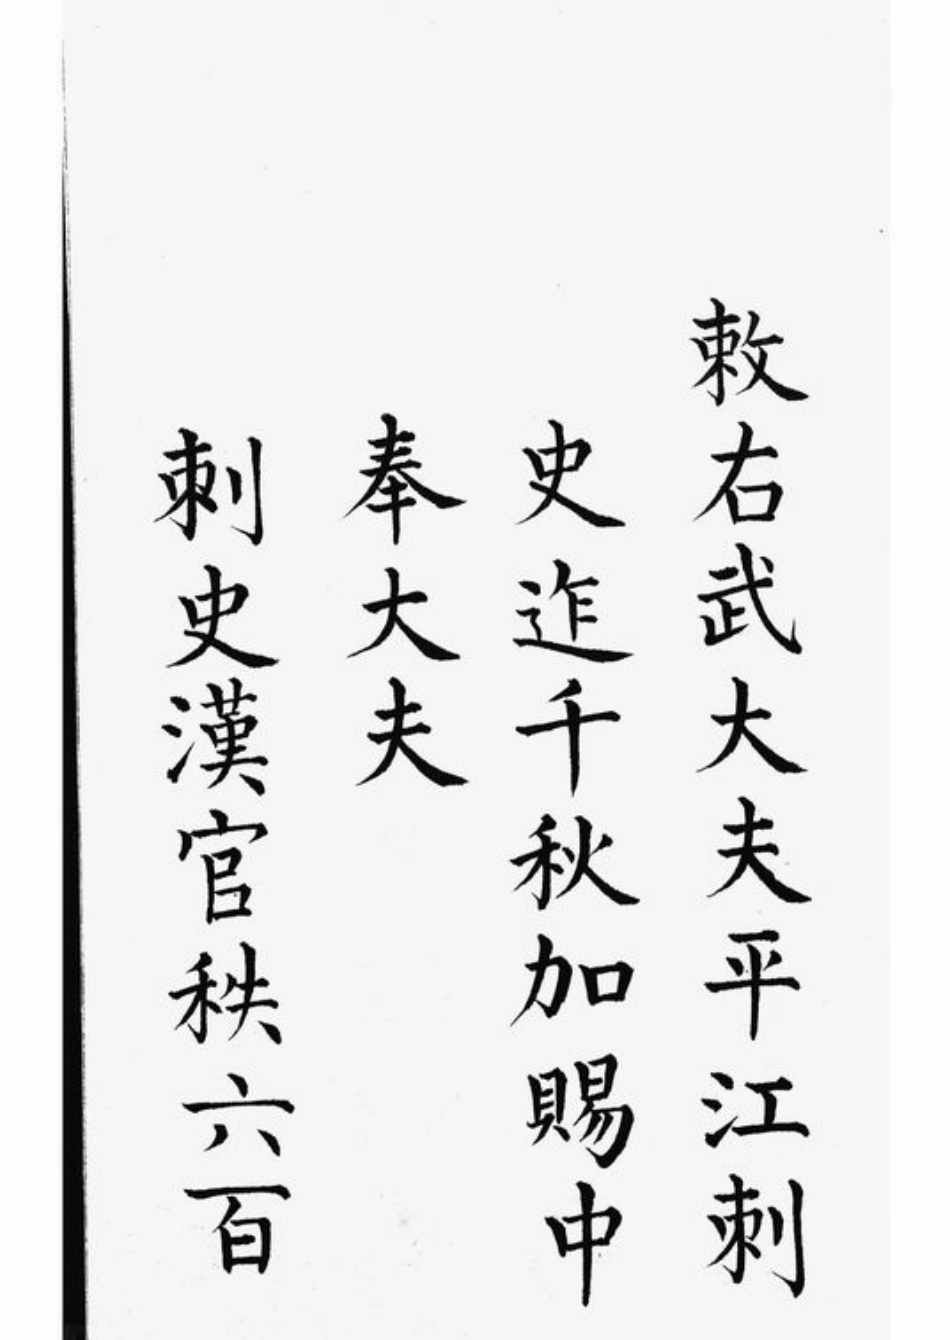 敕右武大夫平江刺
史迮千秋加賜中
奉大夫
刺史漢官秩六百